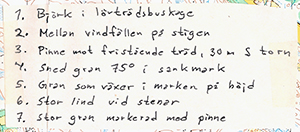 1. Björk i lövträdsbuskage
2. Mellan vindfällen på stigen
3. Pinne mot fristående träd, 30 m S torn
4. Sned gran 75° i sankmark
5. Gran som växer i marken på höjd
6. Stor lind vid stenar
7. Stor gran markerad med pinne